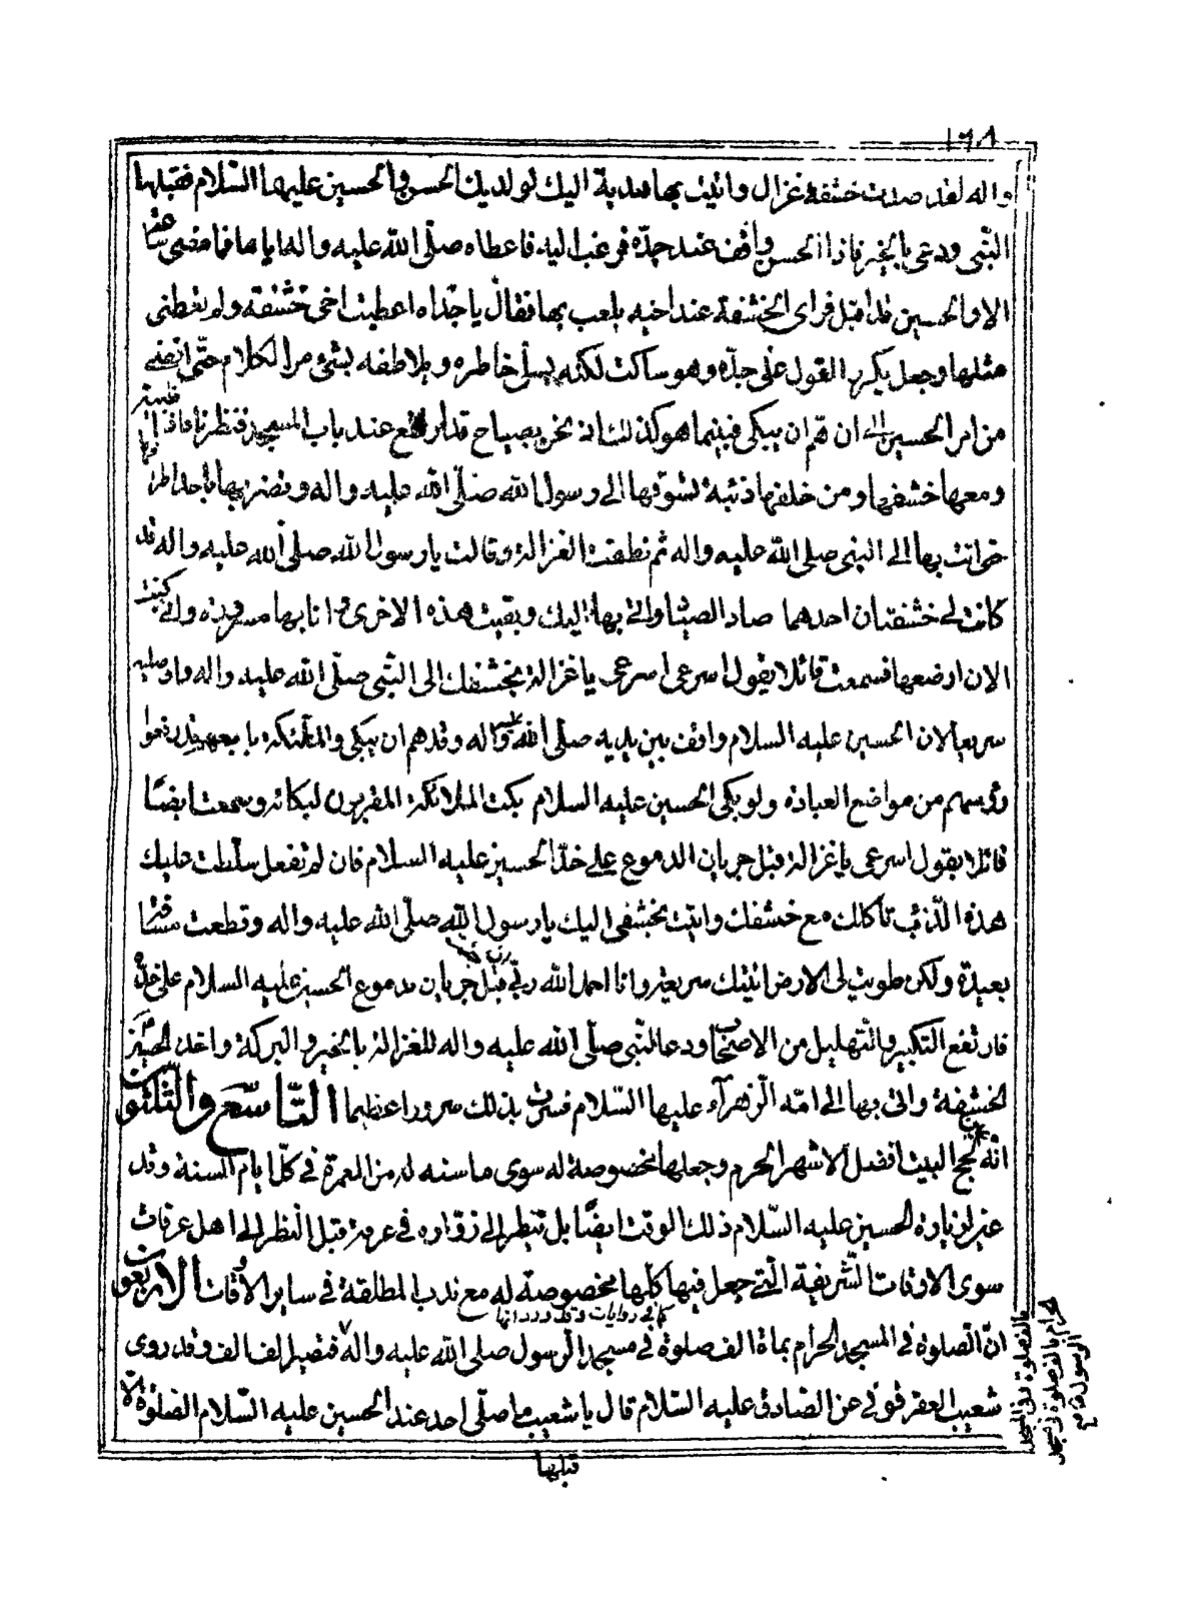 ١٦٨
واله لقد صدت خشفة غزال واتيت بها هدية اليك لولديك الحسن والحسين عليهما السّلام فقبلها
النّبي ودعى بالخير فاذا الحسن واقف عند جدّه فرغب اليه فاعطاه صلّى الله عليه واله اياها فما مضى ساعة
الا والحسين قد اقبل فراى الخشفة عند اخيه يلعب بها فقال يا جدّاه اعطيت اخى خشفة ولم تعطنى
مثلها وجعل يكرر القول على جدّه وهو ساكت لكنه يسلى خاطره ويلاطفه بشئ من الكلام حتّى افضى
من امر الحسين الى ان همّ ان يبكى فبينما هو كذلك اذ نحن بصياح قد ارتفع عند باب المسجد فنظرنا فاذا ظبية
ومعها خشفها ومن خلفها ذئبة تسوقها الى رسول الله صلّى الله عليه واله وتضربها باحد اطرافها
حتى اتت بها الى النبى صلى الله عليه واله ثم نطقت الغزالة وقالت يا رسول الله صلى الله عليه واله قد
كانت لى خشفتان احدهما صاد الصياد واتى بها اليك وبقيت هذه الاخرى وانا بها مسرورة وانى كنت
الان ارضعها فسمعت قائلا يقول اسرعى اسرعى يا غزالة بخشفك الى النّبى صلّى الله عليه واله واوصليه
سريعا لان الحسين عليه السلام واقف بين يديه صلى الله عليه واله وقد هم ان يبكى والملئكة باجمعهم قد رفعوا
رؤسهم من مواضع العبادة ولو بكى الحسين عليه السلام بكت الملائكة المقربون لبكائه وسمعت ايضًا
قائلا يقول اسرعى يا غزالة قبل جريان الدموع على خدّ الحسين عليه السلام فان لم تفعلى سلطت عليك
هذه الذّئب تاكلك مع خشفك واتيت بخشفى اليك يا رسول الله صلّى الله عليه واله وقطعت مسافة
بعيدة ولكن طويت لى الارض اتيتك سريعة وانا احمد الله ربّى قبل جريان دموع الحسين عليه السلام على خدّه
فارتفع التكبير والتّهليل من الاصحاب ودعا النّبى صلّى الله عليه واله للغزالة بالخير والبركة واخذ الحسين
الخشفة واتى بها الى امّه الزّهراء عليها السّلام فسرت بذلك سرورا عظيما التّاسع والثّلثون
انّه لحج البيت افضل الاشهر الحرم وجعلها مخصوصة له سوى ما سنه له من العمرة فى كلّ ايام السنة وقد
عين لزيارة الحسين عليه السّلام ذلك الوقت ايضًا بل ينظر الى زوّاره فى عرفة قبل النّظر الى اهل عرفات
سوى الاوقات الشّريفة الّتى جعل فيها كلّها مخصوصة له مع ندب المطلقة فى ساير الاوقات الاربعون
كما فى روايات وقد ورد انها
انّ الصّلوة فى المسجد الحرام بماة الف صلوة فى مسجد الرّسول صلى الله عليه واله فتصير الف الف وقد روى
شعيب العقرقوفى عن الصّادق عليه السّلام قال يا شعيب ما صلّى احد عند الحسين عليه السّلام الصّلوة الّا
قبلها